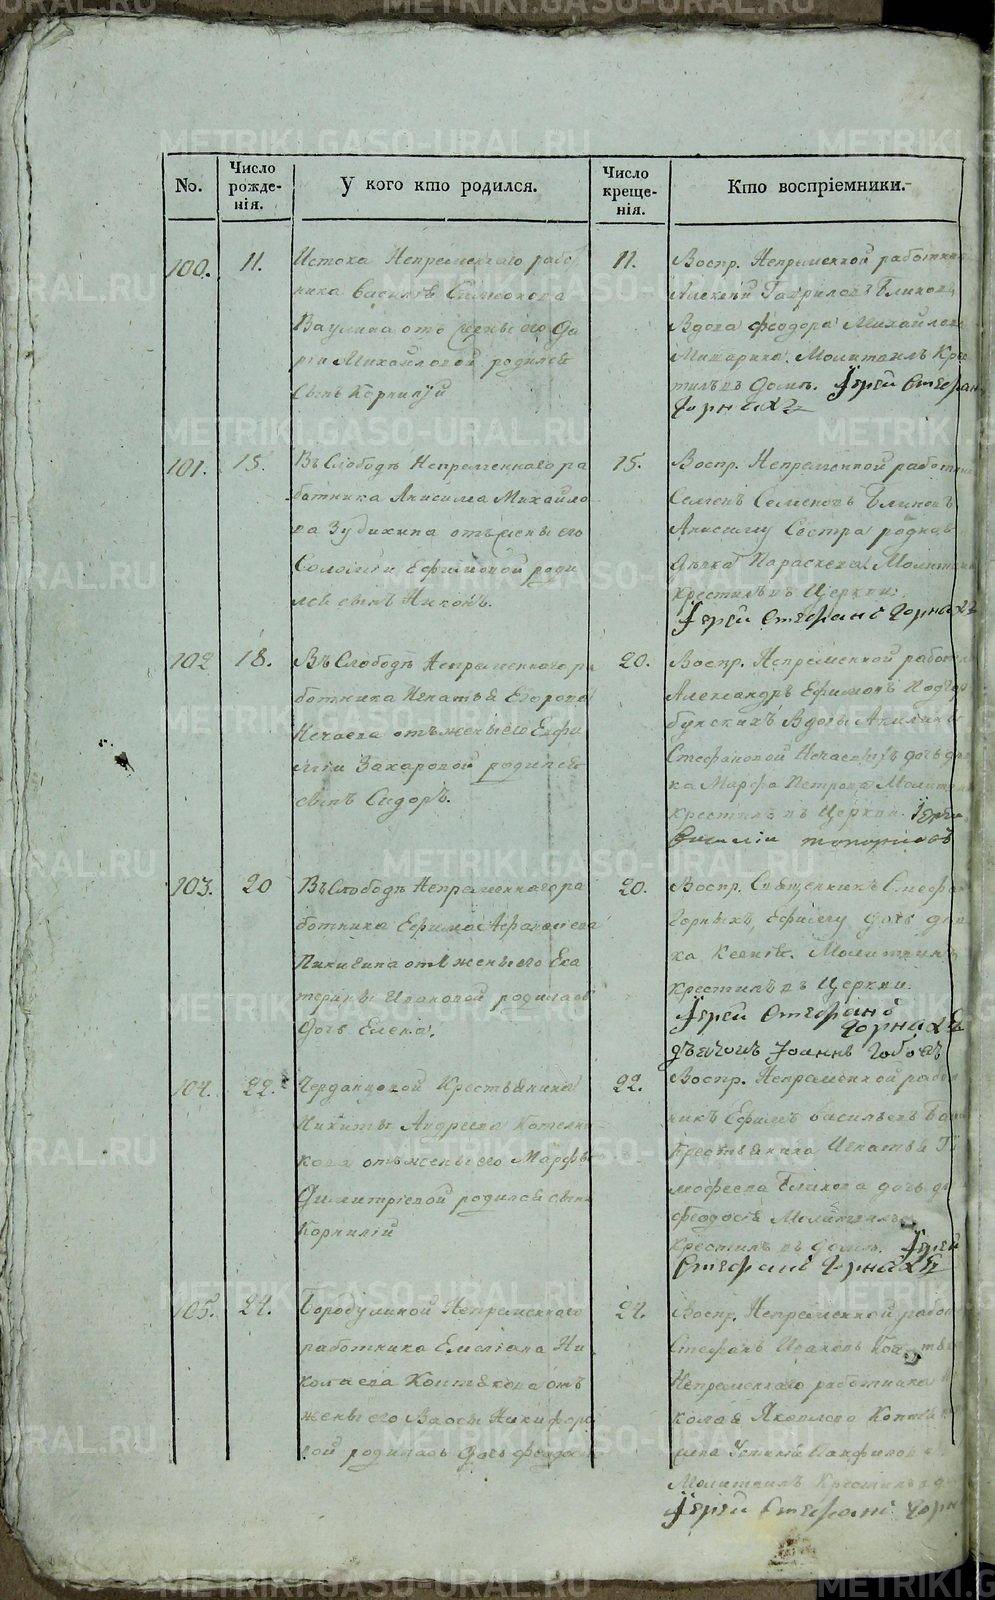 METRIKI.GASO-URAL.RU
No.
Число рожде-нія.
У кого кто родился.
Число креще-нія.
Кто воспріемники.
100.
11.
Истока Непременнаго рабо
ника Василья Симеонова
Ваулина отъ жены его Да
ріи Михайловой родился
сынъ Корнилій
11.
Воспр. Непременной работник
Алексей Гаврилов Блинов
Вдова Феодора Михайлова
Молитвилъ Крес
тилъ въ доме. Іерей Стефан
Горныхъ
101.
15.
Въ Слободе Непременнаго ра
ботника Анисима Михайло
ва Зудихина отъ жены его
Соломіи Ефимовой роди
лся сынъ Никонъ.
15.
Воспр. Непременной работни
Семенъ Семеновъ Блиновъ
Анисиму Сестра родная
Девка Параскева Молитвил
крестилъ въ Церкви.
Іерей Стефанъ Горныхъ
102
18.
Въ Слободе Непременнаго ра
ботника Игнатья Егорова
Нечаева отъ жены его Евфи
міи Захаровой родился
сынъ Сидоръ.
20.
Воспр. Непременной работн
Александръ Ефимовъ Подгор
бунскихъ Вдовы Акилины
Стефановой Нечаевыхъ дочь дев
ка Марфа Петрова Молитвил
крестилъ въ Церкви. Іерей
Василій Топорковъ
103.
20
Въ Слободе Непременнаго ра
ботника Ефима Афанасьева
отъ жены его Ека
терины Ивановой родилась
дочь Елена.
20.
Воспр. Священникъ Стефан
Горныхъ, Ефиму дочь дев
ка Ксенія. Молитвилъ
крестилъ въ Церкви.
Іерей Стефанъ
Горныхъ
дьячокъ Іоаннъ
104.
22.
Черданцовой Крестьянина
Никиты Андреева Котельни
кова отъ жены его Марфы
Димитріевой родился сынъ
Корнилій
22.
Воспр. Непременной работ
никъ Ефимъ Васильевъ
Крестьянина Игнатья Ти
мофеева Блинова дочь де
Феодосья Молитвилъ
крестилъ въ доме. Іерей
Стефанъ Горныхъ
105.
24.
Бородулиной Непременнаго
работника Емеліана Ни
колаева Коптякова отъ
жены его Вассы Никифоро
вой родилась дочь Феодось
24.
Воспр. Непременной работ
Стефанъ Ивановъ
Непременнаго работника Ни
колая Яковлева Коптяк
жена
Молитвилъ Крестилъ в до
Іерей Стефанъ Горн